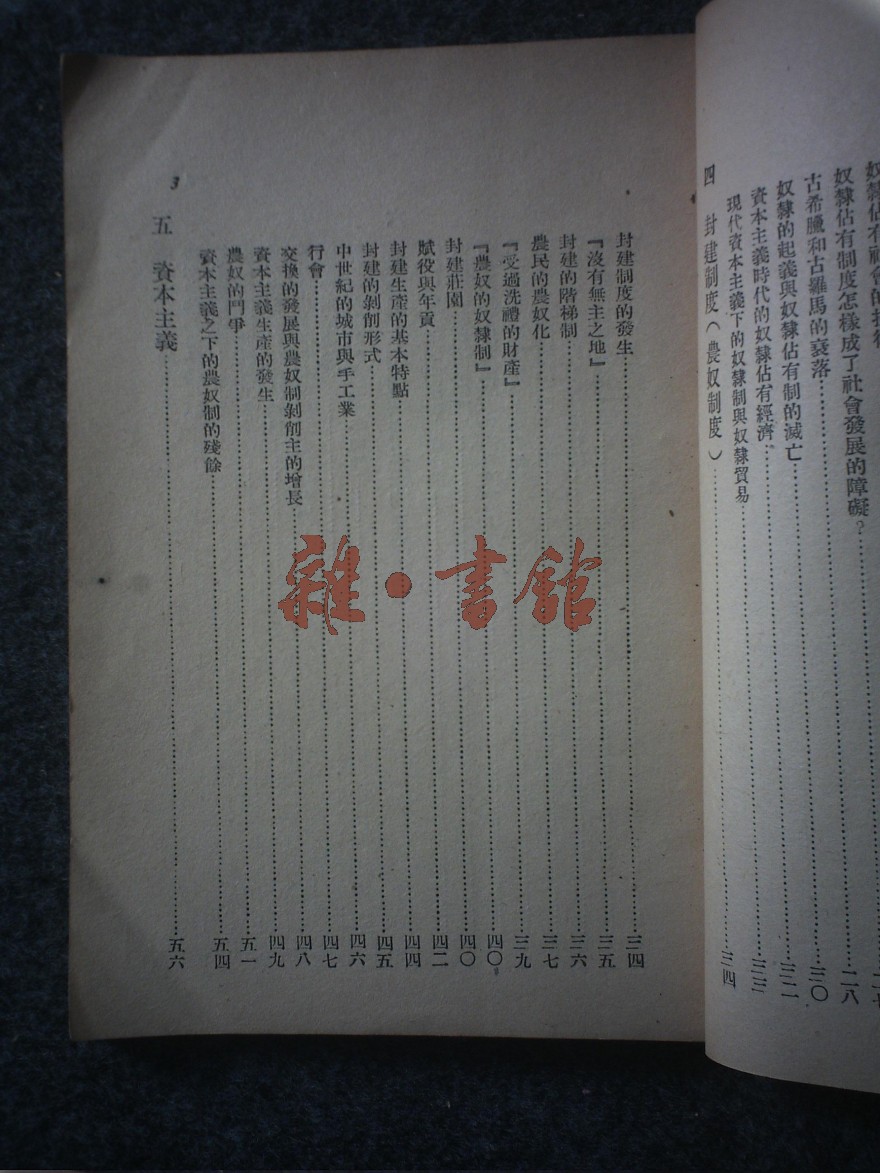 奴隸佔有社會的
奴隸佔有制度怎樣成了社會發展的障礙？……二七
古希臘和古羅馬的衰落……二八
奴隸的起義與奴隸佔有制的滅亡……三〇
資本主義時代的奴隸佔有經濟……三二
現代資本主義下的奴隸制與奴隸貿易……三三
四 封建制度（農奴制度）……三四
封建制度的發生……三四
『沒有無主之地』……三五
封建的階梯制……三六
農民的農奴化……三七
『受過洗禮的財產』……三九
『農奴的奴隸制』……四〇
封建莊園……四〇
賦役與年貢……四二
封建生產的基本特點……四四
封建的剝削形式……四五
中世紀的城市與手工業……四六
行會……四七
交換的發展與農奴制剝削主的增長……四八
資本主義生產的發生……四九
農奴的鬥爭……五一
資本主義之下的農奴制的殘餘……五四
五 資本主義……五六
3
雜·書館